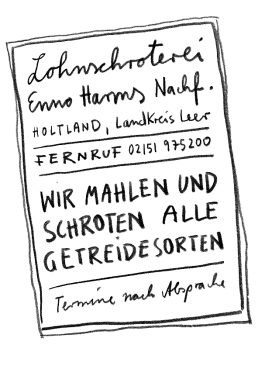 Lohnschroterei
Enno Harms Nachf.
HOLTLAND, Landkreis Leer
FERNRUF 02151 975200
WIR MAHLEN UND
SCHROTEN ALLE
GETREIDESORTEN
Termine nach Absprache